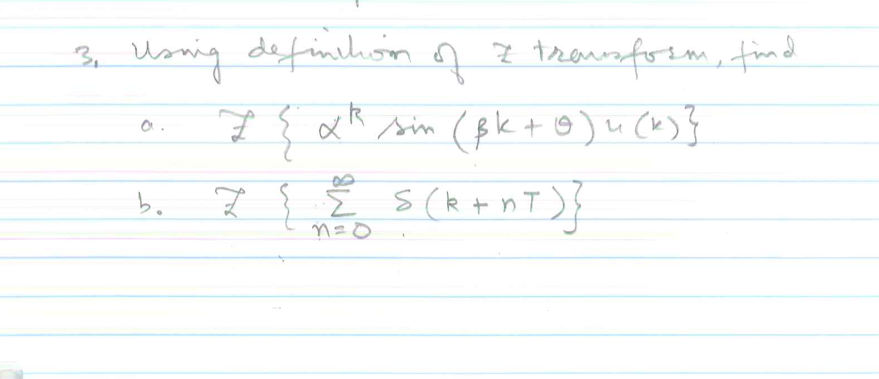 3. Using definition of z transform, find
a. Z { α^k sin (βk + θ) u (k)}
b. Z { ∞ Σ n=0 δ (k + nT)}